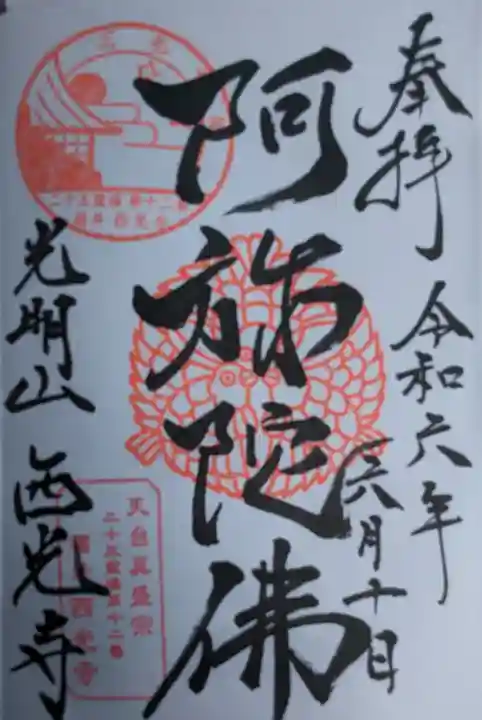 奉拝
令和六年
六月十日
阿弥陀佛
光明山 西光寺
天台真盛宗
二十五霊場第十二番
西光寺